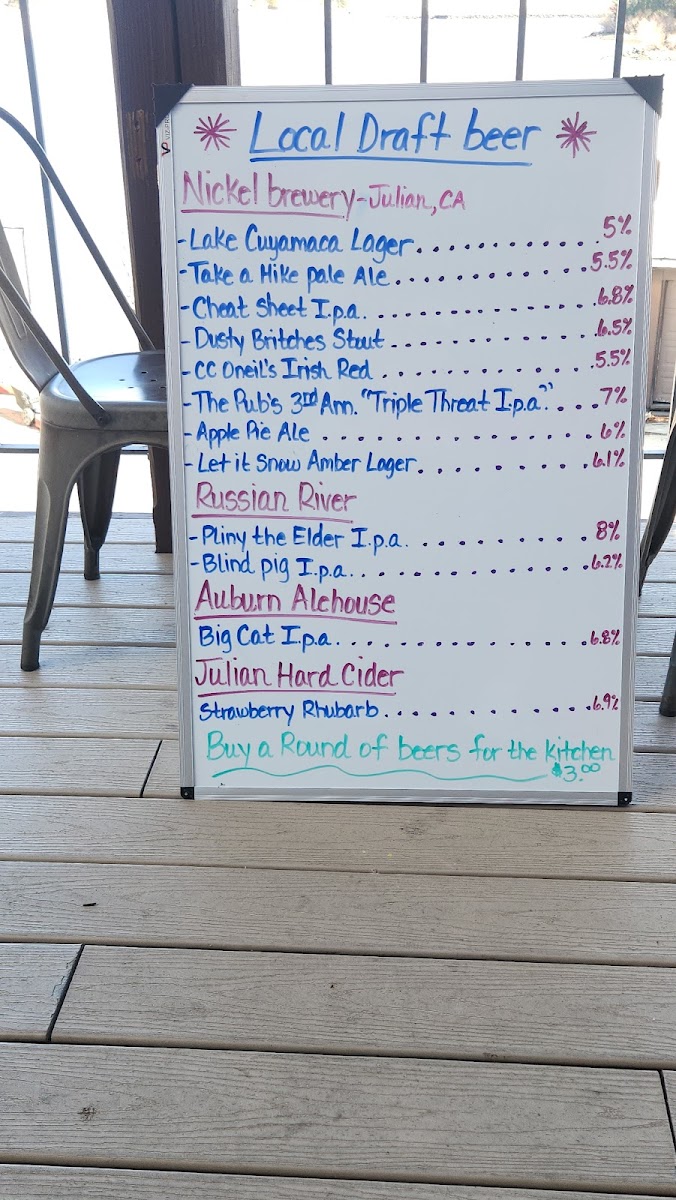 Local Draft beer
Nickel brewery-Julian, CA
-Lake Cuyamaca Lager............5%
-Take a Hike pale Ale..............5.5%
-Cheat Sheet I.p.a...............6.8%
-Dusty Britches Stout..............6.5%
-CC Oneil's Irish Red..............5.5%
-The Pub's 3rd Ann. "Triple Threat I.p.a."....7%
-Apple Pie Ale................6%
-Let it Snow Amber Lager..........6.1%
Russian River
-Pliny the Elder I.p.a............8%
-Blind pig I.p.a................6.2%
Auburn Alehouse
Big Cat I.p.a..................6.8%
Julian Hard Cider
Strawberry Rhubarb..............6.9%
Buy a Round of beers for the kitchen
$3.00